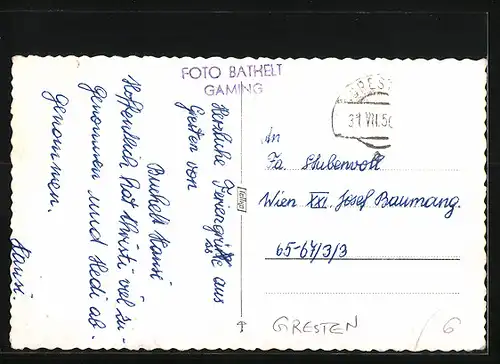 FOTO BATHELT
GAMING
Herzliche Feriengrüße aus
Gresten von
Hansi
Hoffentlich hat Christi viel zu-
genommen und Hedi ab-
genommen.
Hansi.
GREST
31.VII.56
An
Fa. Stubenvoll
Wien XXI. Josef Baumang.
65-67/3/3
GRESTEN
6